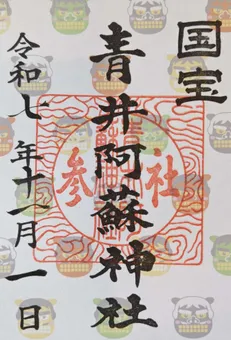 国宝
青井阿蘇神社
参社
令和七年十一月一日